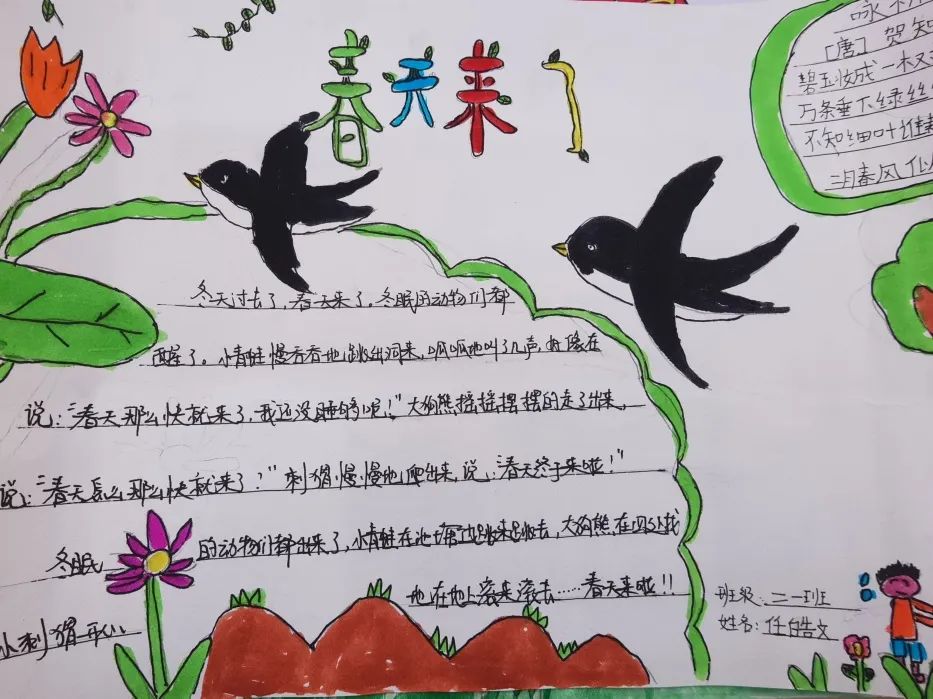 春天来了
咏柳
[唐] 贺知
碧玉妆成一
万条垂下绿丝
不知细叶谁
二月春风似
冬天过去了，春天来了。冬眠的动物们都
醒了。小青蛙慢吞吞地跳出洞来，呱呱地叫了几声，好像在
说：“春天那么快就来了，我还没睡够呢！”大狗熊摇摇摆摆的走了出来，
说：“春天怎么那么快就来了？”刺猬慢慢地爬出来，说：“春天终于来啦！”
冬眠的动物们都出来了，小青蛙在池塘边跳来跳去，大狗熊在四处找
小刺猬开心地在地上滚来滚去……春天来啦！！
班级：二一班
姓名：任皓文